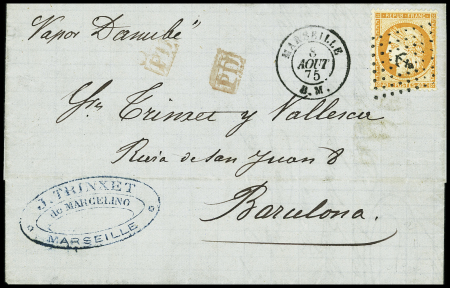 Vapor Danubé"
REPUB·FRANC
MARSEILLE
8
AOUT
75
B. M.
P.D.
P.D.
Sres Trinxet y Vallesca
Riera de San Juan 8
Barcelona.
J. TRINXET
de MARCELINO
MARSEILLE